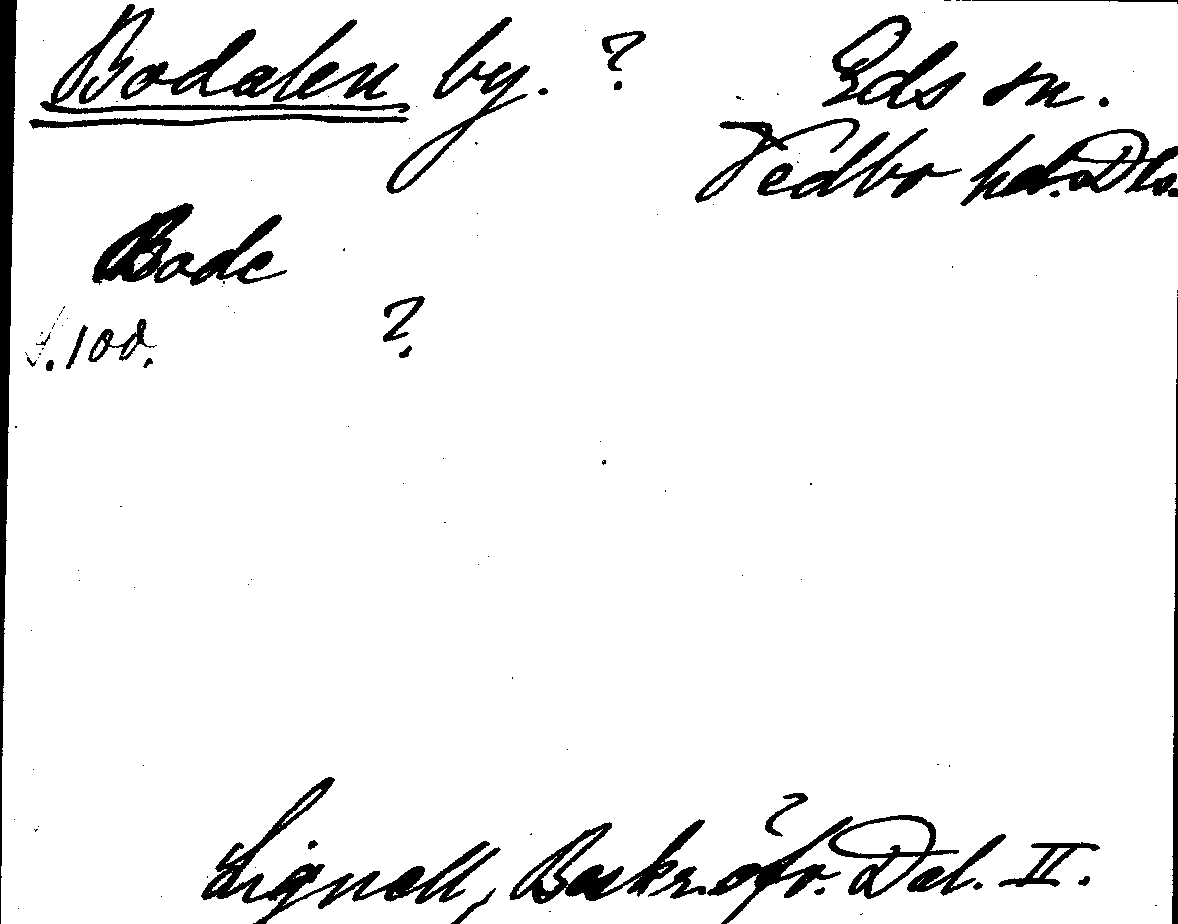 Bodalen by. ? Eds sn.
Vedbo hd. Dls.
Bode
S. 100. ?
Lignell, Beskr. öfv. Dal. II.